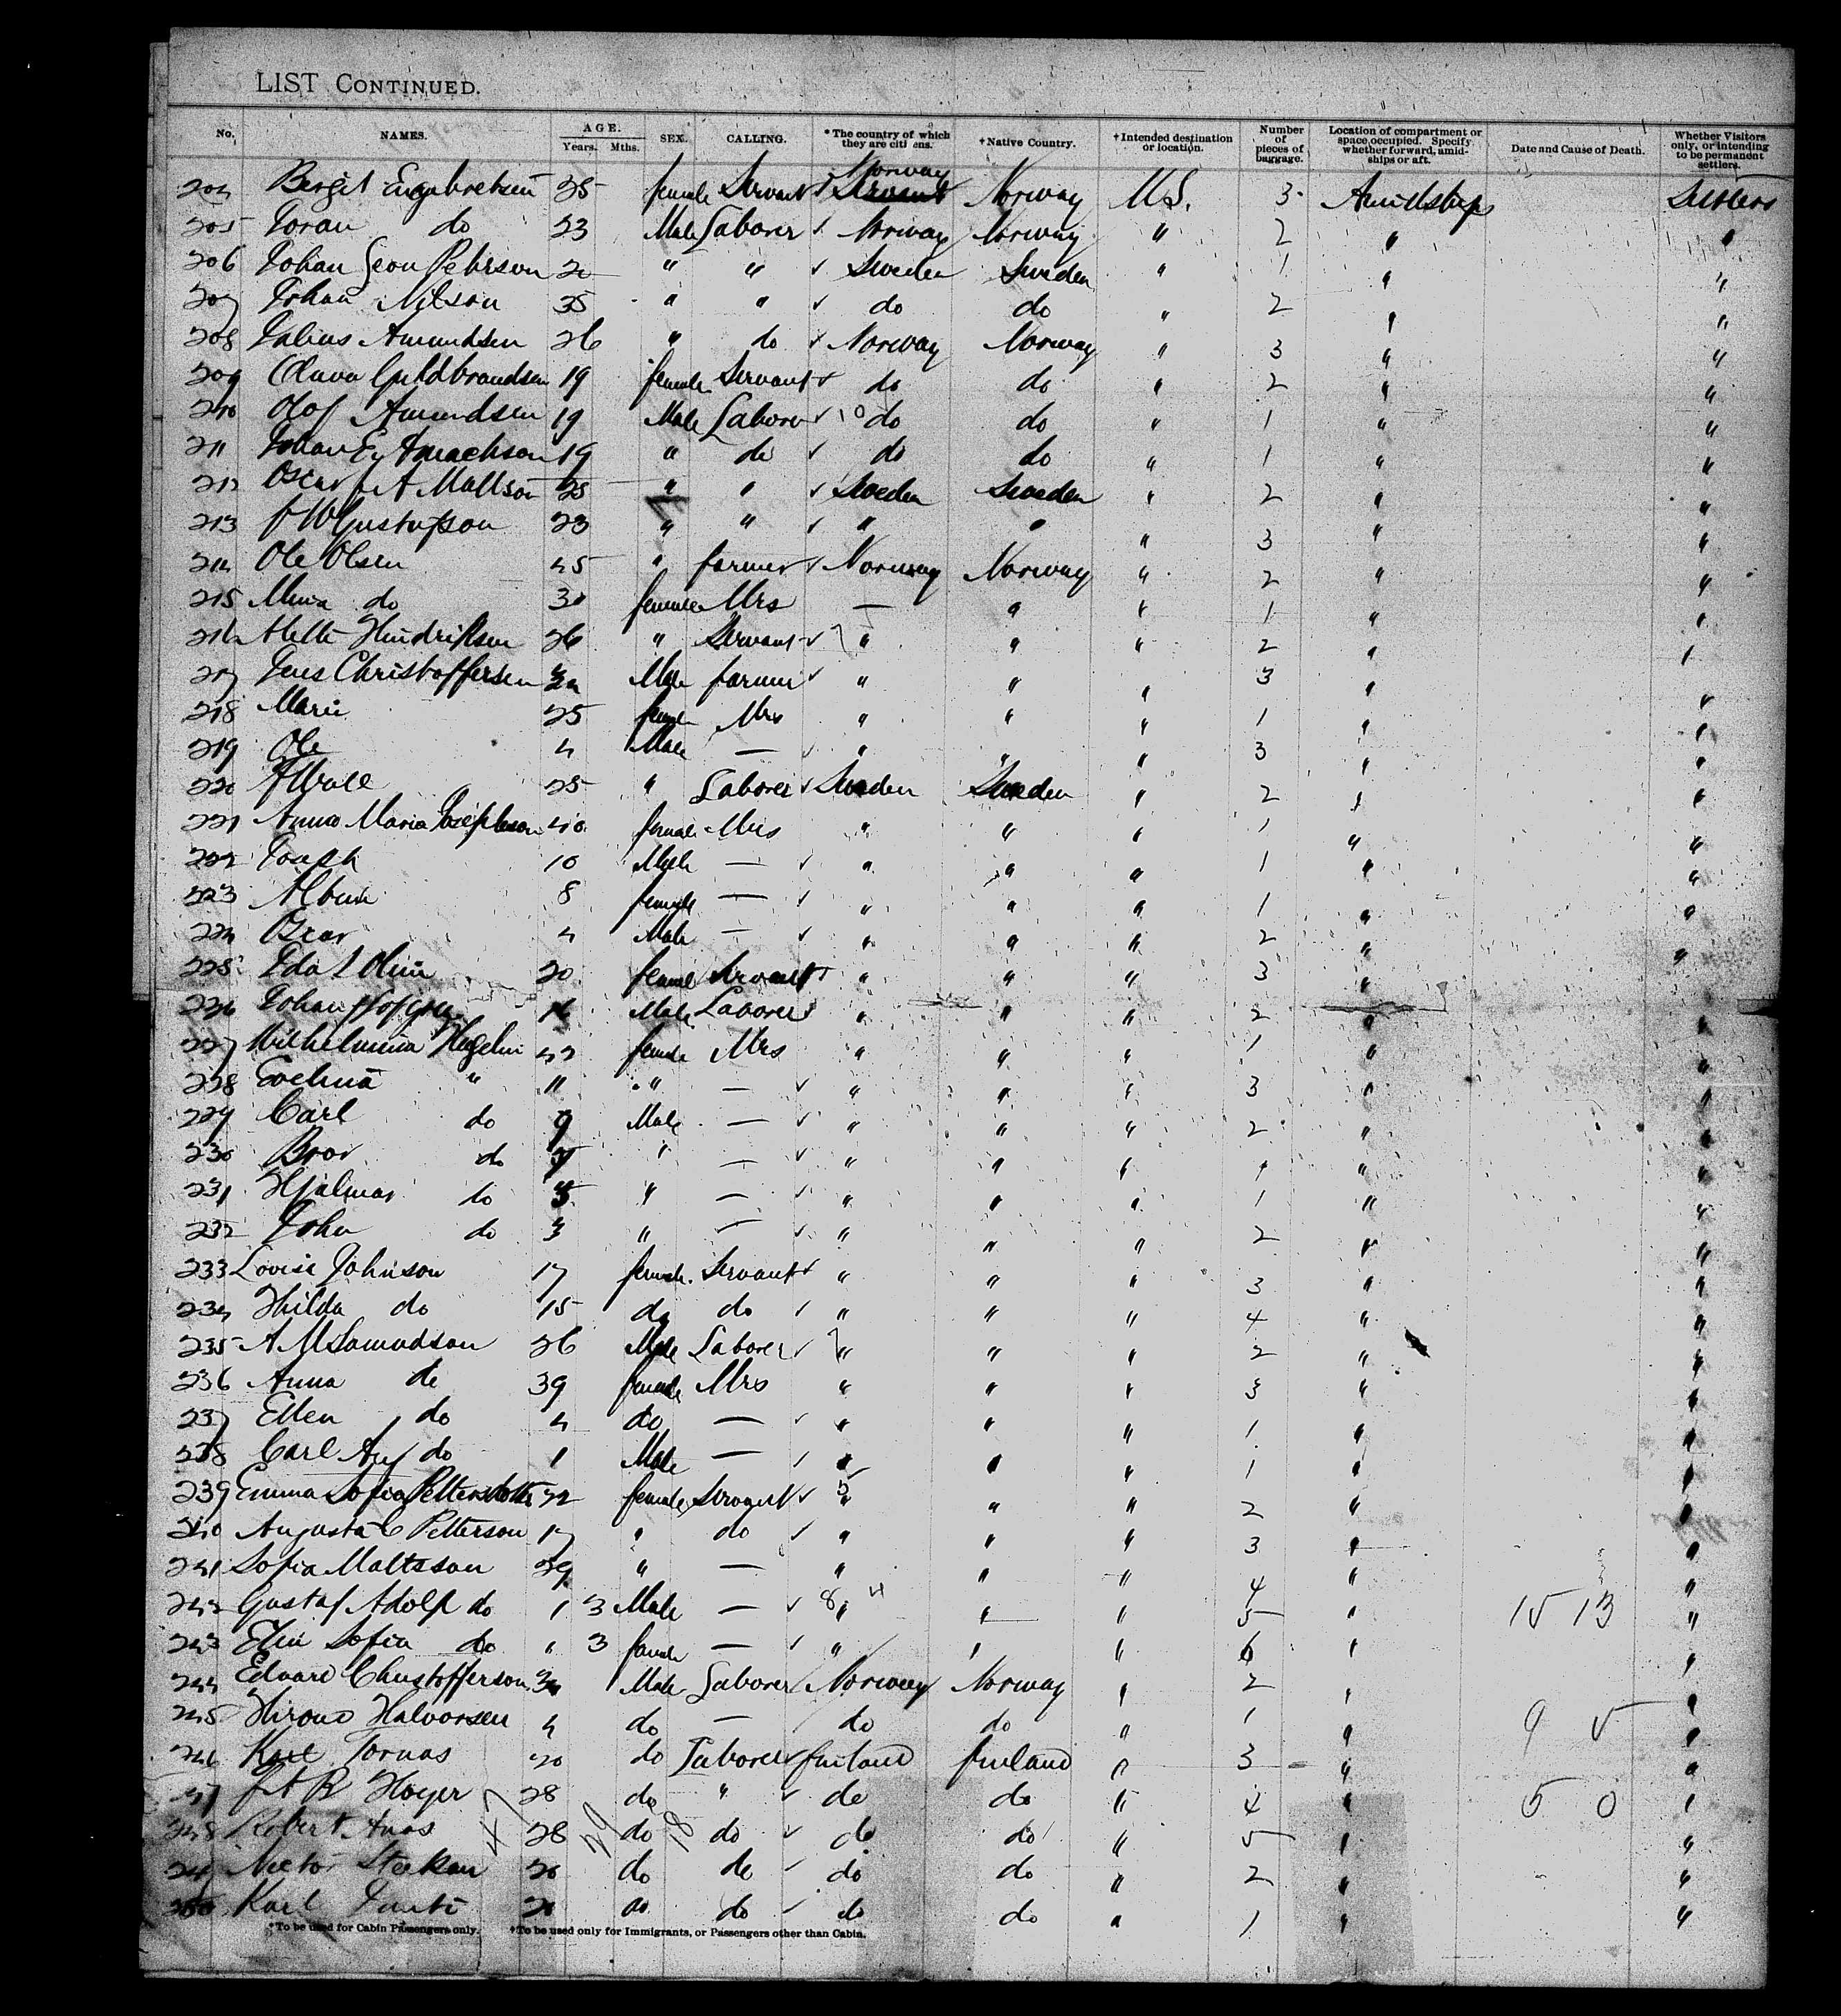 LIST CONTINUED.
No. NAMES. AGE. Years. Mths. SEX. CALLING. *The country of which they are citizens. †Native Country. †Intended destination or location. Number of pieces of baggage. Location of compartment or space occupied. Specify whether forward, amidships or aft. Date and Cause of Death. Whether Visitors only, or intending to be permanent settlers.
Norway
204 Bergit Engebretsen 35 female Servant ✓ Servant Norway U.S. 3 Amidships Settlers
205 Joran do 23 Male Laborer ✓ Norway Norway " 2 " "
206 Johan Leon Pehrson 20 " " ✓ Sweden Sweden " 1 " "
207 Johan Nilson 35 " " ✓ do do " 2 " "
208 Julius Amundsen 26 " do ✓ Norway Norway " 3 " "
209 Oluva Guldbrandsen 19 female Servant ✓ do do " 2 " "
210 Olof Amundsen 19 Male Laborer ✓ 10 do do " 1 " "
211 Johan E. 19 " do ✓ do do " 1 " "
212 Oscar A Mattson 25 " " ✓ Sweden Sweden " 2 " "
213 F W Gustafson 23 " " ✓ " " " 3 " "
214 Ole Olsen 45 " farmer ✓ Norway Norway " 2 " "
215 Mina do 30 female Mrs — " " 1 " "
216 Mette Hendriksen 26 " Servant ✓ 7 " " " 2 " "
217 Jens Christoffersen Male farmer ✓ " " " 3 " "
218 Marie 25 female Mrs " " " 1 " "
219 Ole 4 Male — ✓ " " " 3 " "
220 A Wall 25 " Laborer ✓ Sweden Sweden " 2 " "
221 Anna Maria Josephson 40 female Mrs " " " 1 " "
222 Joseph 10 Male — ✓ " " " 1 " "
223 Albin 8 female — ✓ " " " 1 " "
224 Oscar 4 Male — ✓ " " " 2 " "
225 Ida Olin 20 female Servant ✓ " " " 3 " "
226 Johan 16 Male Laborer ✓ " " " 2 " "
227 Wilhelmina Hegelin 42 female Mrs " " " 1 " "
228 Evelina " 11 " — ✓ " " " 3 " "
229 Carl do 9 Male — ✓ " " " 2 " "
230 Bror do 7 " — ✓ " " " 1 " "
231 Hjalmar do 5 " — ✓ " " " 1 " "
232 John do 3 " — ✓ " " " 2 " "
233 Lovise Johnson 17 female Servant ✓ " " " 3 " "
234 Hilda do 15 do do ✓ " " " 4 " "
235 A M Samudson 26 Male Laborer ✓ 7 " " " 2 " "
236 Anna do 39 female Mrs " " " 3 " "
237 Ellen do 4 do — ✓ " " " 1 " "
238 Carl Aug do 1 Male — ✓ " " " 1 " "
239 Emma Sofia Pettersdotter 22 female Servant ✓ 5 " " " 2 " "
240 Augusta C Petterson 17 " do ✓ " " " 3 " "
241 Sofia Mattsson 29 " — " " " 4 " "
242 Gustaf Adolf do 1 3 Male — ✓ 8 4 " " " 5 " 15 13 "
243 Elin Sofia do " 3 female — ✓ " " " 6 " "
244 Edvard Christofferson Male Laborer ✓ Norway Norway " 2 " "
245 Halvorsen 4 do — do do " 1 " 9 5 "
246 Karl Tornas 20 do Laborer ✓ Finland Finland " 3 " "
247 F A R Hoyer 28 do " ✓ do do " 4 " 5 0 "
248 Robert Anas 28 do do ✓ do do " 5 " "
47 29 18
249 Nector Steekan 20 do do ✓ do do " 2 " "
250 Karl 21 do do ✓ do do " 1 " "
*To be used for Cabin Passengers only. †To be used only for Immigrants, or Passengers other than Cabin.